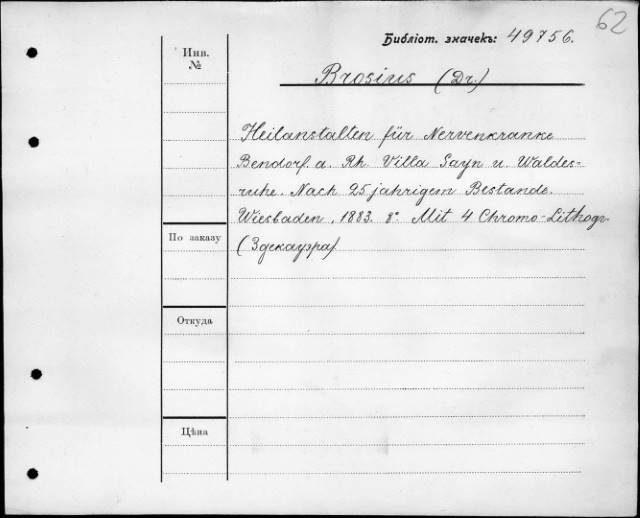 62
Библіот. значекъ: 49756.
Инв.
№
Brosius (Dr.)
Heilanstalten für Nervenkranke
Bendorf. a. Rh. Villa Sayn u. Waldes-
ruhe. Nach 25 jahrigem Bestande.
Wiesbaden, 1883. 8° Mit 4 Chromo-Lithogr.
(Здекауэра)
По заказу
Откуда
Цѣна